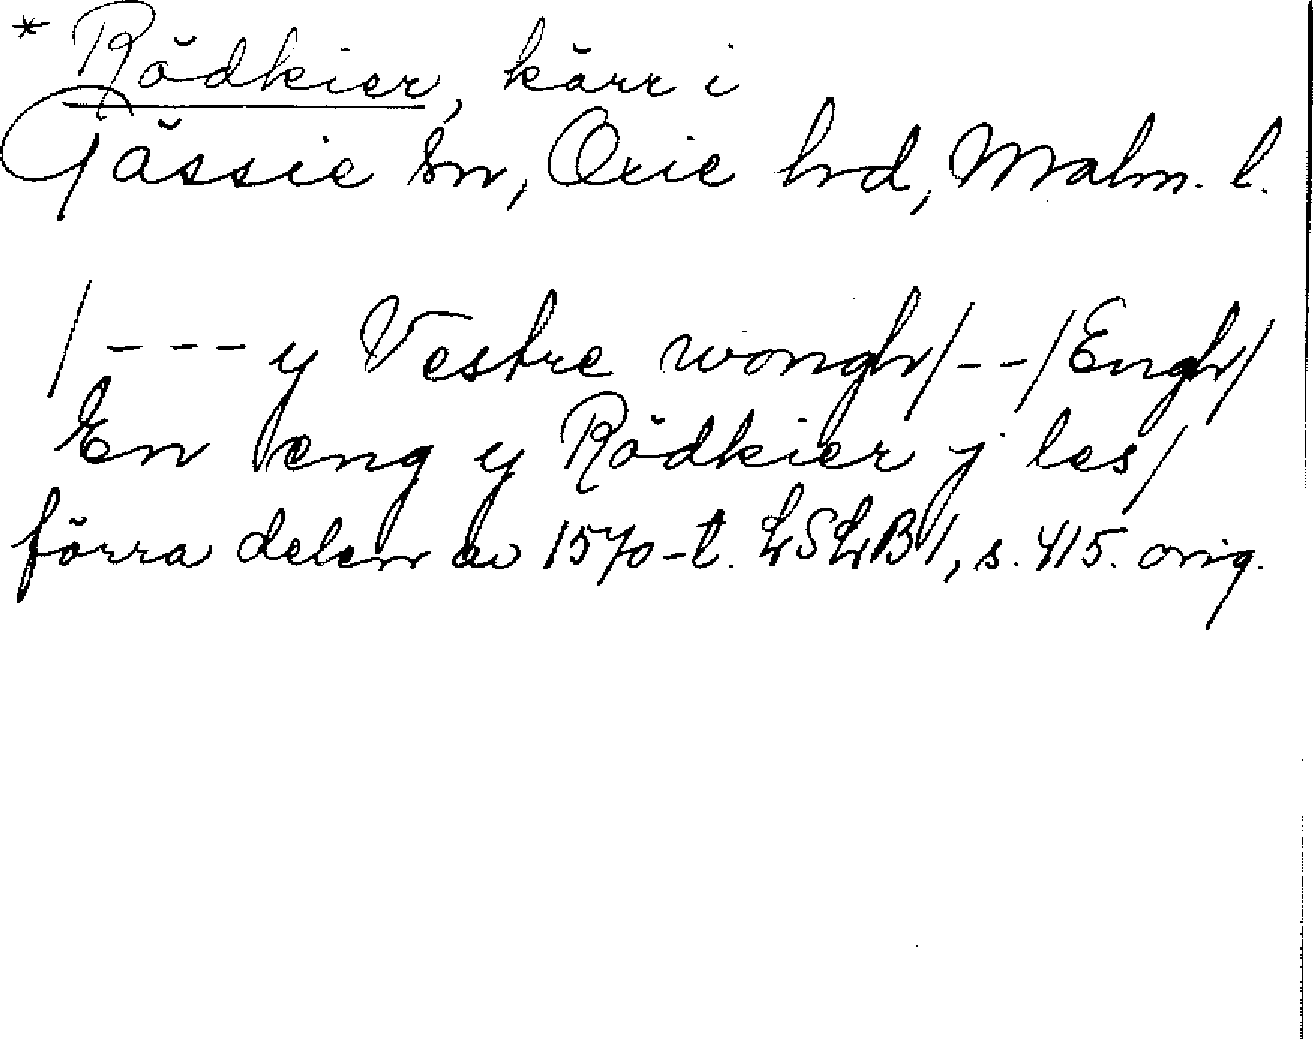 * Rödkier, kärr i
Gässie sn, Oxie hd, Malm. l.
/--- y Vestre wongh/--/Engh/
En eng y Rödkier j les/
förra delen av 1570-t. LSLB1, s. 415. orig.